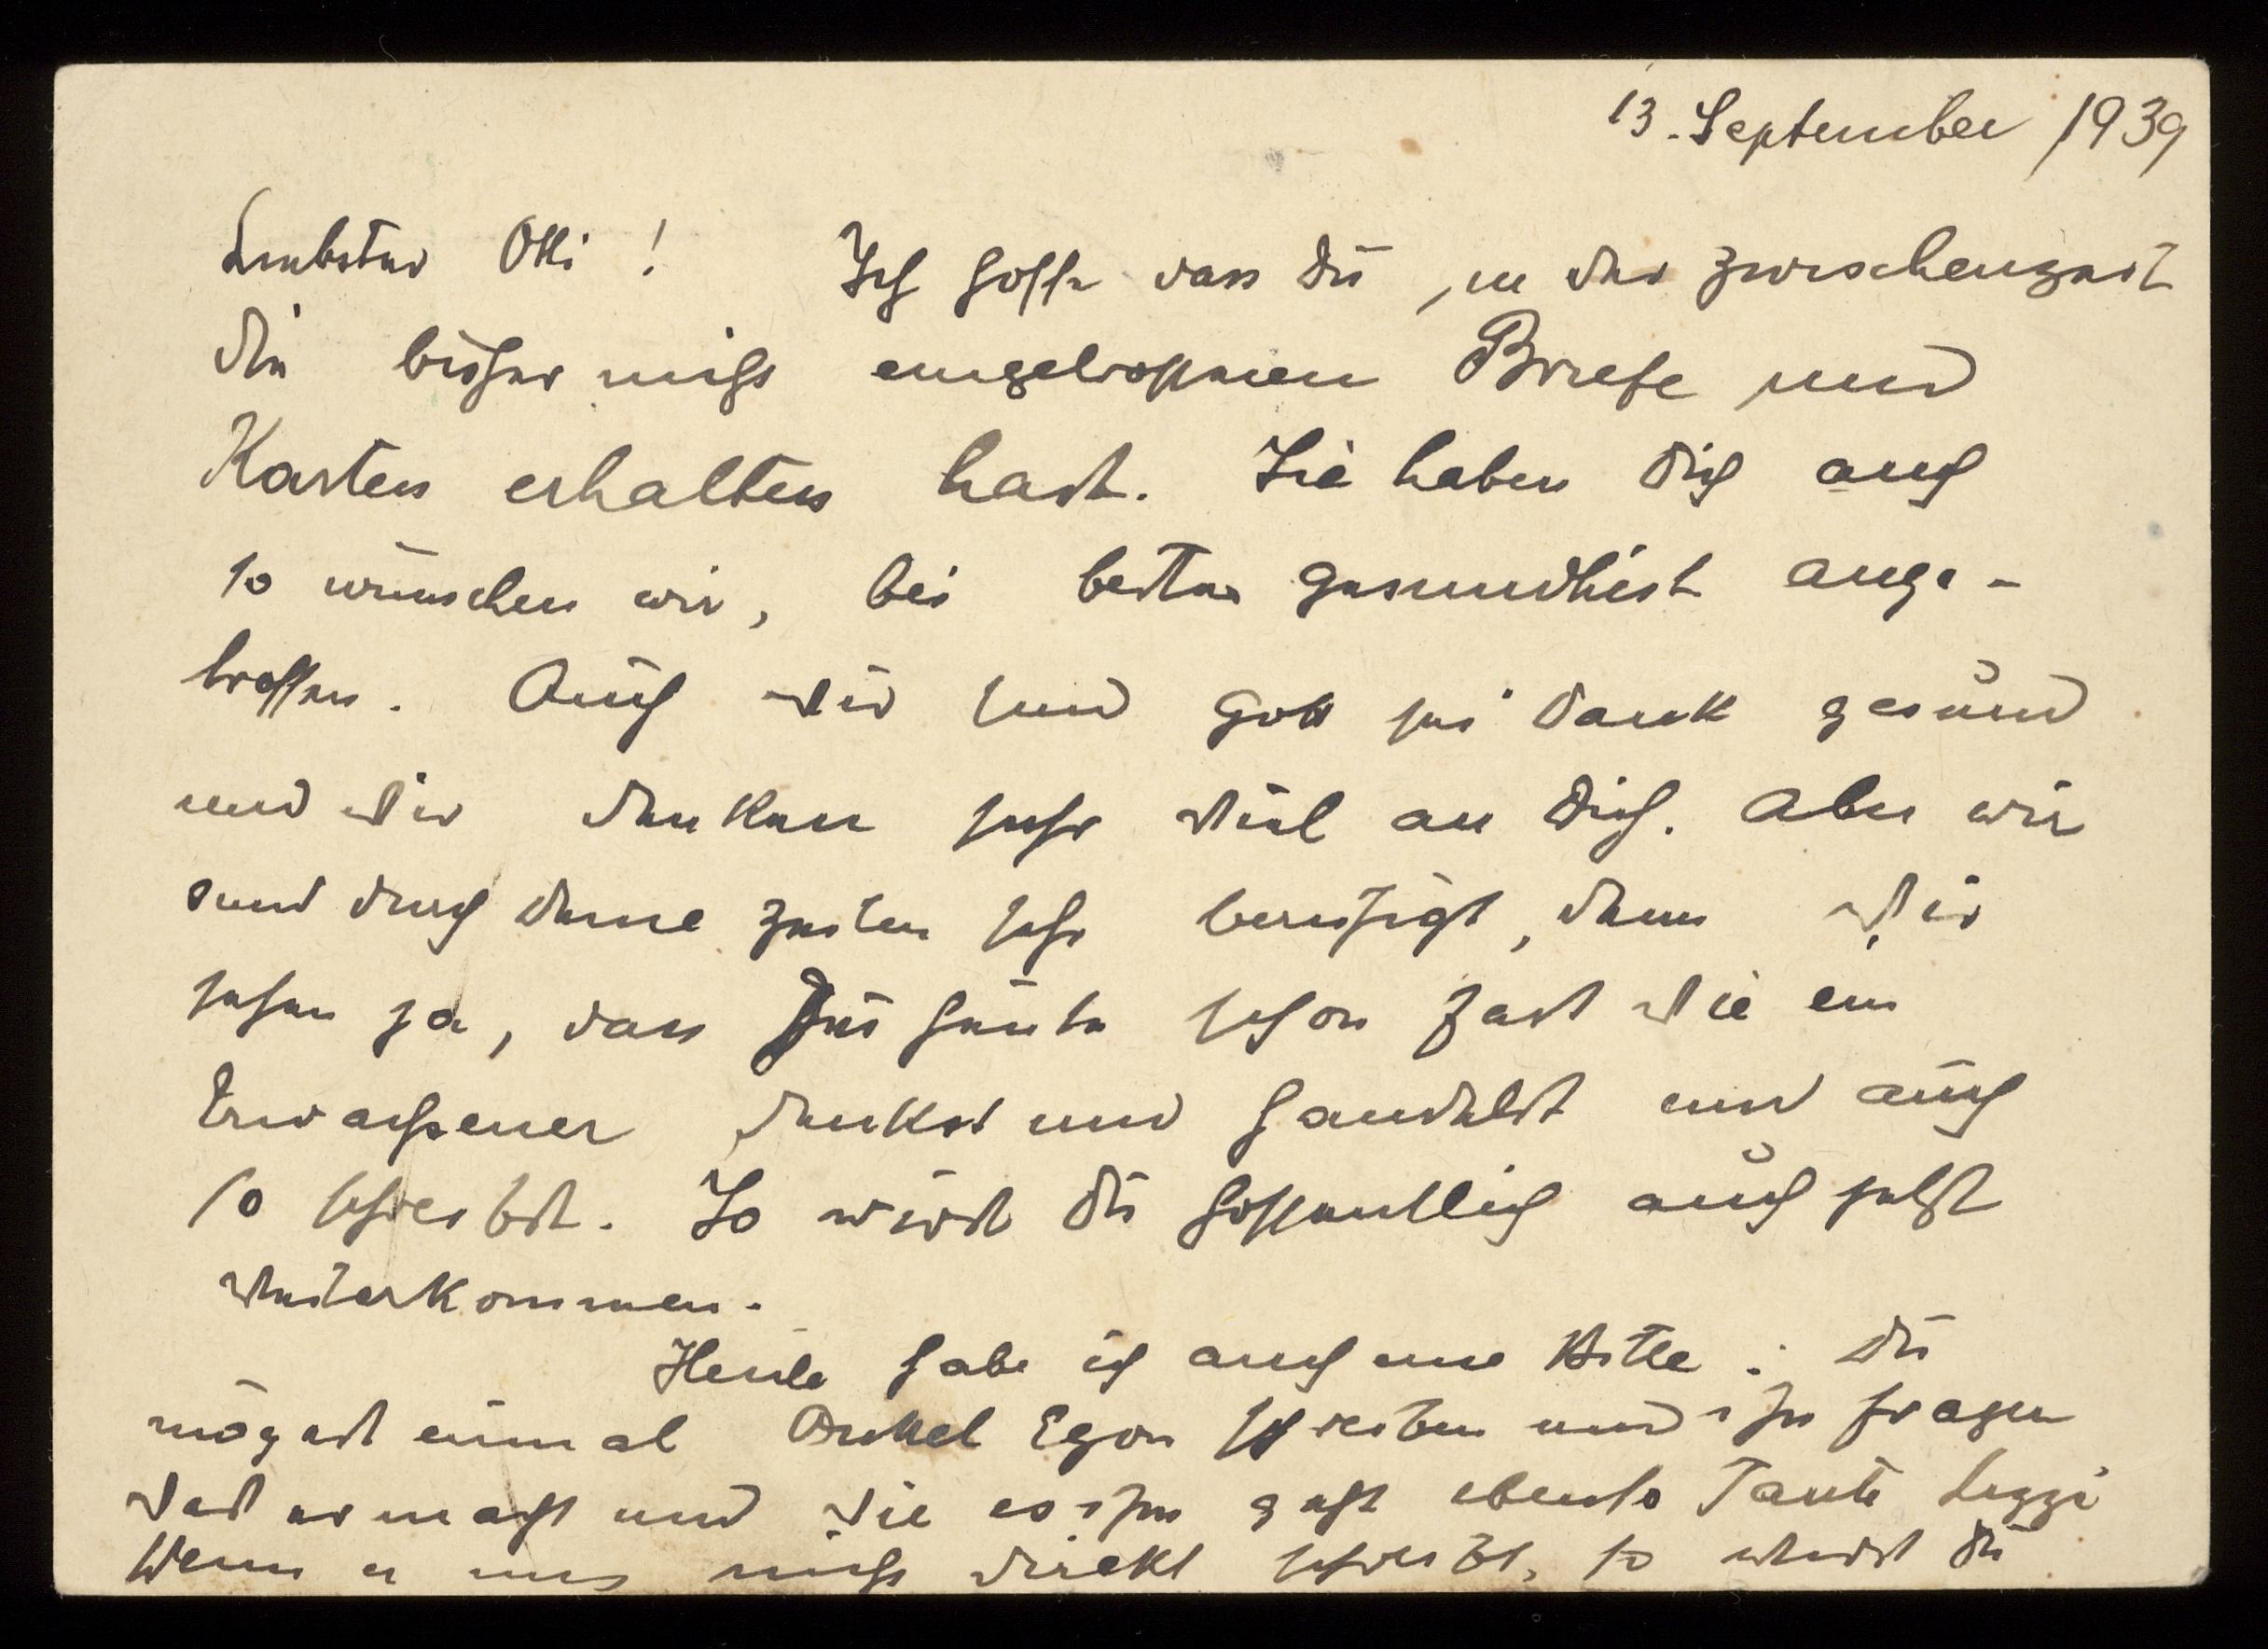 13. September 1939
Liebster Otti! Ich hoffe dass Du in der Zwischenzeit
die bisher nicht eingetroffenen Briefe und
Karten erhalten hast. Sie haben Dich auch
so wünschen wir, bei bester Gesundheit ange-
troffen. Auch wir sind Gott sei Dank gesund
und wir denken sehr viel an Dich. Aber wir
sind durch Deine Zeilen sehr beruhigt, denn wir
sehen ja, dass Du heute schon fast wie ein
Erwachsener denkst und handelst und auch
so schreibst. So wirst Du hoffentlich auch jetzt
weiterkommen.
Heute habe ich auch eine Bitte: Du
mögest einmal Onkel Egon schreiben und ihn fragen
was er macht und wie es ihm geht ebenso Tante Lizzi
Wenn er uns nicht direkt schreibt, so wirst Du